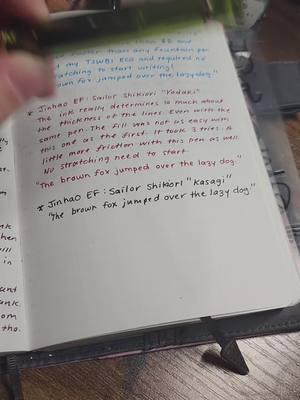 than $8 and
faster than any fountain pen
my TSWBI ECO and required no
scratching to start writing!
brown fox jumped over the lazy dog."
* Jinhao EF: Sailor Shikiori "Yodaki"
The ink really determines so much about
the thickness of the lines. Even with the
same pen. The fill was not as easy with
this one as the first. It took 3 tries. A
little more friction with this pen as well.
No stratching need to start
"The brown fox jumped over the lazy dog."
* Jinhao EF: Sailor Shikiori "Kasagi"
"The brown fox jumped over the lazy dog"
in
ank.
om
tho.